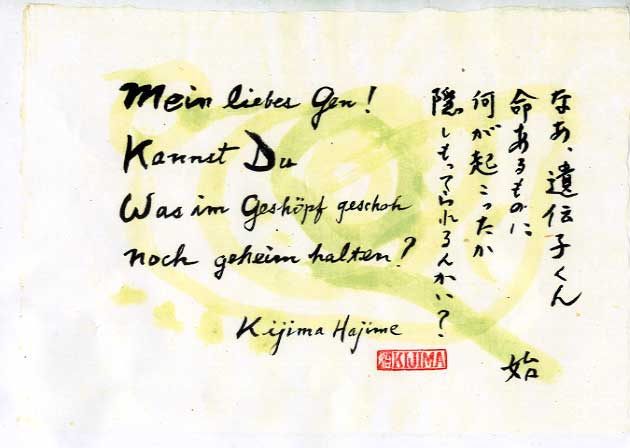 Mein liebes Gen!
Kannst Du
Was im Geshöpf geschoh
noch geheim halten?
Kijima Hajime
KIJIMA
なあ、遺伝子くん
命あるものに
何が起こったか
隠しもってられるんかい?
始